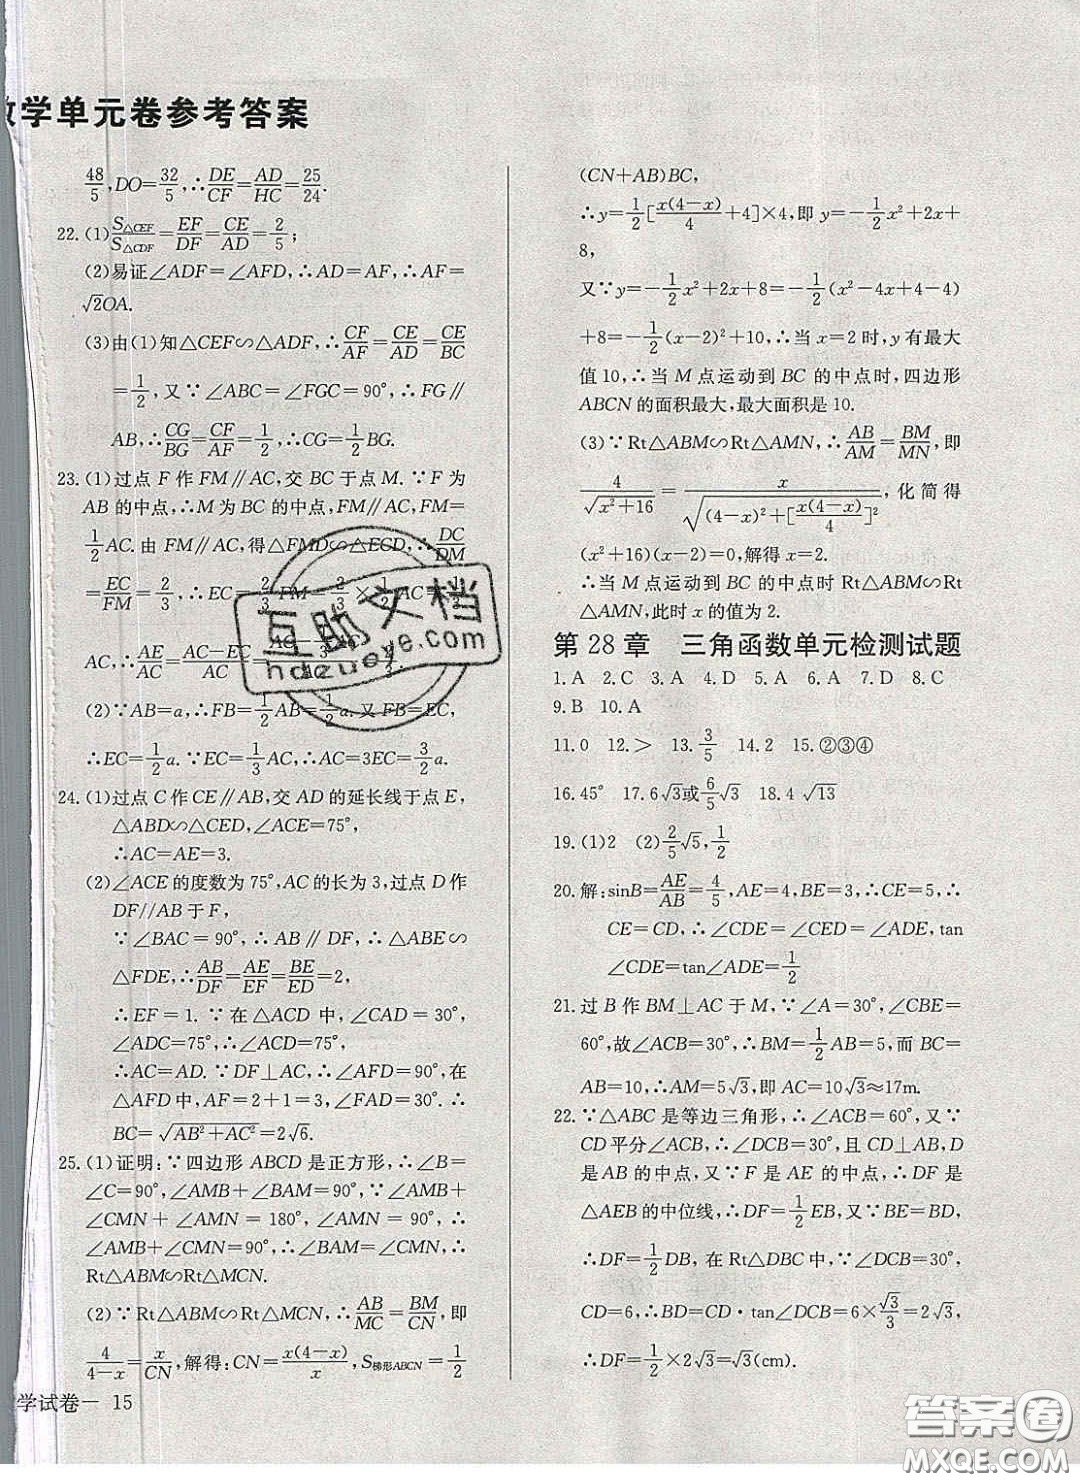 数学单元卷参考答案
48/5,DO=32/5,∴DE/CF=AD/HC=25/24.
22.(1)S△CEF/S△CDF=EF/DF=CE/AD=2/5;
(2)易证∠ADF=∠AFD,∴AD=AF,∴AF=
√2OA.
(3)由(1)知△CEF∽△ADF,∴CF/AF=CE/AD=CE/BC
=1/2,又∵∠ABC=∠FGC=90°,∴FG∥
AB,∴CG/BG=CF/AF=1/2,∴CG=1/2BG.
23.(1)过点 F 作 FM∥AC,交 BC 于点 M.∵F 为
AB 的中点,∴M 为 BC 的中点,FM∥AC,FM=
1/2AC.由 FM∥AC,得△FMD∽△ECD,∴DC/DM
=EC/FM=2/3,∴EC=2/3FM=2/3×1/2AC=1/3
AC,∴AE/AC=AC−EC/AC=
(2)∵AB=a,∴FB=1/2AB=1/2a.又 FB=EC,
∴EC=1/2a.∵EC=1/3AC,∴AC=3EC=3/2a.
24.(1)过点 C 作 CE∥AB,交 AD 的延长线于点 E,
△ABD∽△CED,∠ACE=75°,
∴AC=AE=3.
(2)∠ACE 的度数为 75°,AC 的长为 3,过点 D 作
DF//AB 于 F,
∵∠BAC=90°,∴AB∥DF,∴△ABE∽
△FDE,∴AB/DF=AE/EF=BE/ED=2,
∴EF=1.∵在△ACD 中,∠CAD=30°,
∠ADC=75°,∴∠ACD=75°,
∴AC=AD.∵DF⊥AC,∴∠AFD=90°,在
△AFD 中,AF=2+1=3,∠FAD=30°.∴
BC=√(AB²+AC²)=2√6.
25.(1)证明:∵四边形 ABCD 是正方形,∴∠B=
∠C=90°,∠AMB+∠BAM=90°,∵∠AMB+
∠CMN+∠AMN=180°,∠AMN=90°,∴
∠AMB+∠CMN=90°,∴∠BAM=∠CMN,∴
Rt△ABM∽Rt△MCN.
(2)∵Rt△ABM∽Rt△MCN,∴AB/MC=BM/CN,即
4/4−x=x/CN,解得:CN=x(4−x)/x,S梯形ABCN=1/2
学试卷— 15
(CN+AB)BC,
∴y=1/2[x(4−x)/4+4]×4,即 y=−1/2x²+2x+
8,
又∵y=−1/2x²+2x+8=−1/2(x²−4x+4−4)
+8=−1/2(x−2)²+10,∴当 x=2 时,y 有最大
值 10,∴当 M 点运动到 BC 的中点时,四边形
ABCN 的面积最大,最大面积是 10.
(3)∵Rt△ABM∽Rt△AMN,∴AB/AM=BM/MN,即
4/√(x²+16)=x/√((4−x)²+[x(4−x)/4]²),化简得
(x²+16)(x−2)=0,解得 x=2.
∴当 M 点运动到 BC 的中点时 Rt△ABM∽Rt
△AMN,此时 x 的值为 2.
第 28 章 三角函数单元检测试题
1.A 2.C 3.A 4.D 5.A 6.A 7.D 8.C
9.B 10.A
11.0 12.> 13.3/5 14.2 15.②③④
16.45° 17.6√3或6/5√3 18.4√13
19.(1)2 (2)2/5√5,1/2
20.解:sinB=AE/AB=4/5,AE=4,BE=3,∴CE=5,∴
CE=CD,∴∠CDE=∠CED=∠ADE,tan
∠CDE=tan∠ADE=1/2
21.过 B 作 BM⊥AC 于 M,∵∠A=30°,∠CBE=
60°,故∠ACB=30°,∴BM=1/2AB=5,而 BC=
AB=10,∴AM=5√3,即 AC=10√3≈17m.
22.∵△ABC 是等边三角形,∴∠ACB=60°,又∵
CD平分∠ACB,∴∠DCB=30°,且 CD⊥AB,D
是 AB 的中点,又∵F 是 AE 的中点,∴DF 是
△AEB的中位线,∴DF=1/2EB,又∵BE=BD,
∴DF=1/2DB,在 Rt△DBC 中,∵∠DCB=30°,
CD=6,∴BD=CD·tan∠DCB=6×√3/3=2√3,
∴DF=1/2×2√3=√3(cm).
互助文档
hdzuoye.com
答案圈
MXQE.COM